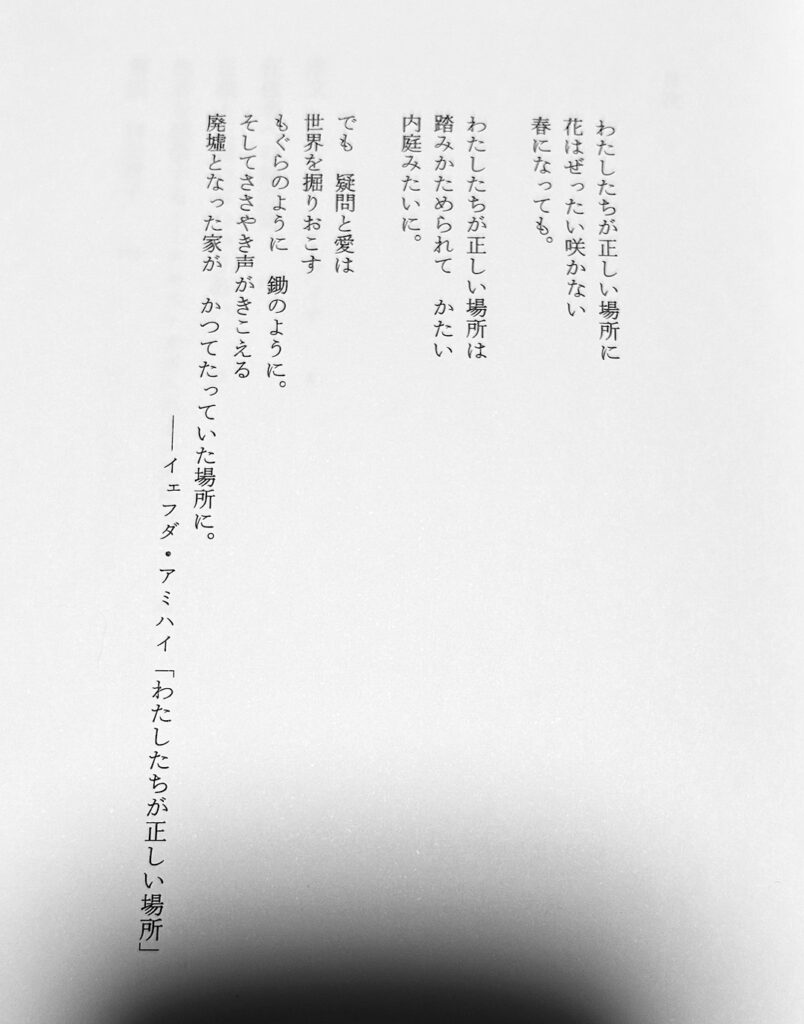 わたしたちが正しい場所に
花はぜったい咲かない
春になっても。
わたしたちが正しい場所は
踏みかためられて　かたい
内庭みたいに。
でも　疑問と愛は
世界を掘りおこす
もぐらのように　鋤のように。
そしてささやき声がきこえる
廃墟となった家が　かつてたっていた場所に。
――イェフダ・アミハイ「わたしたちが正しい場所」